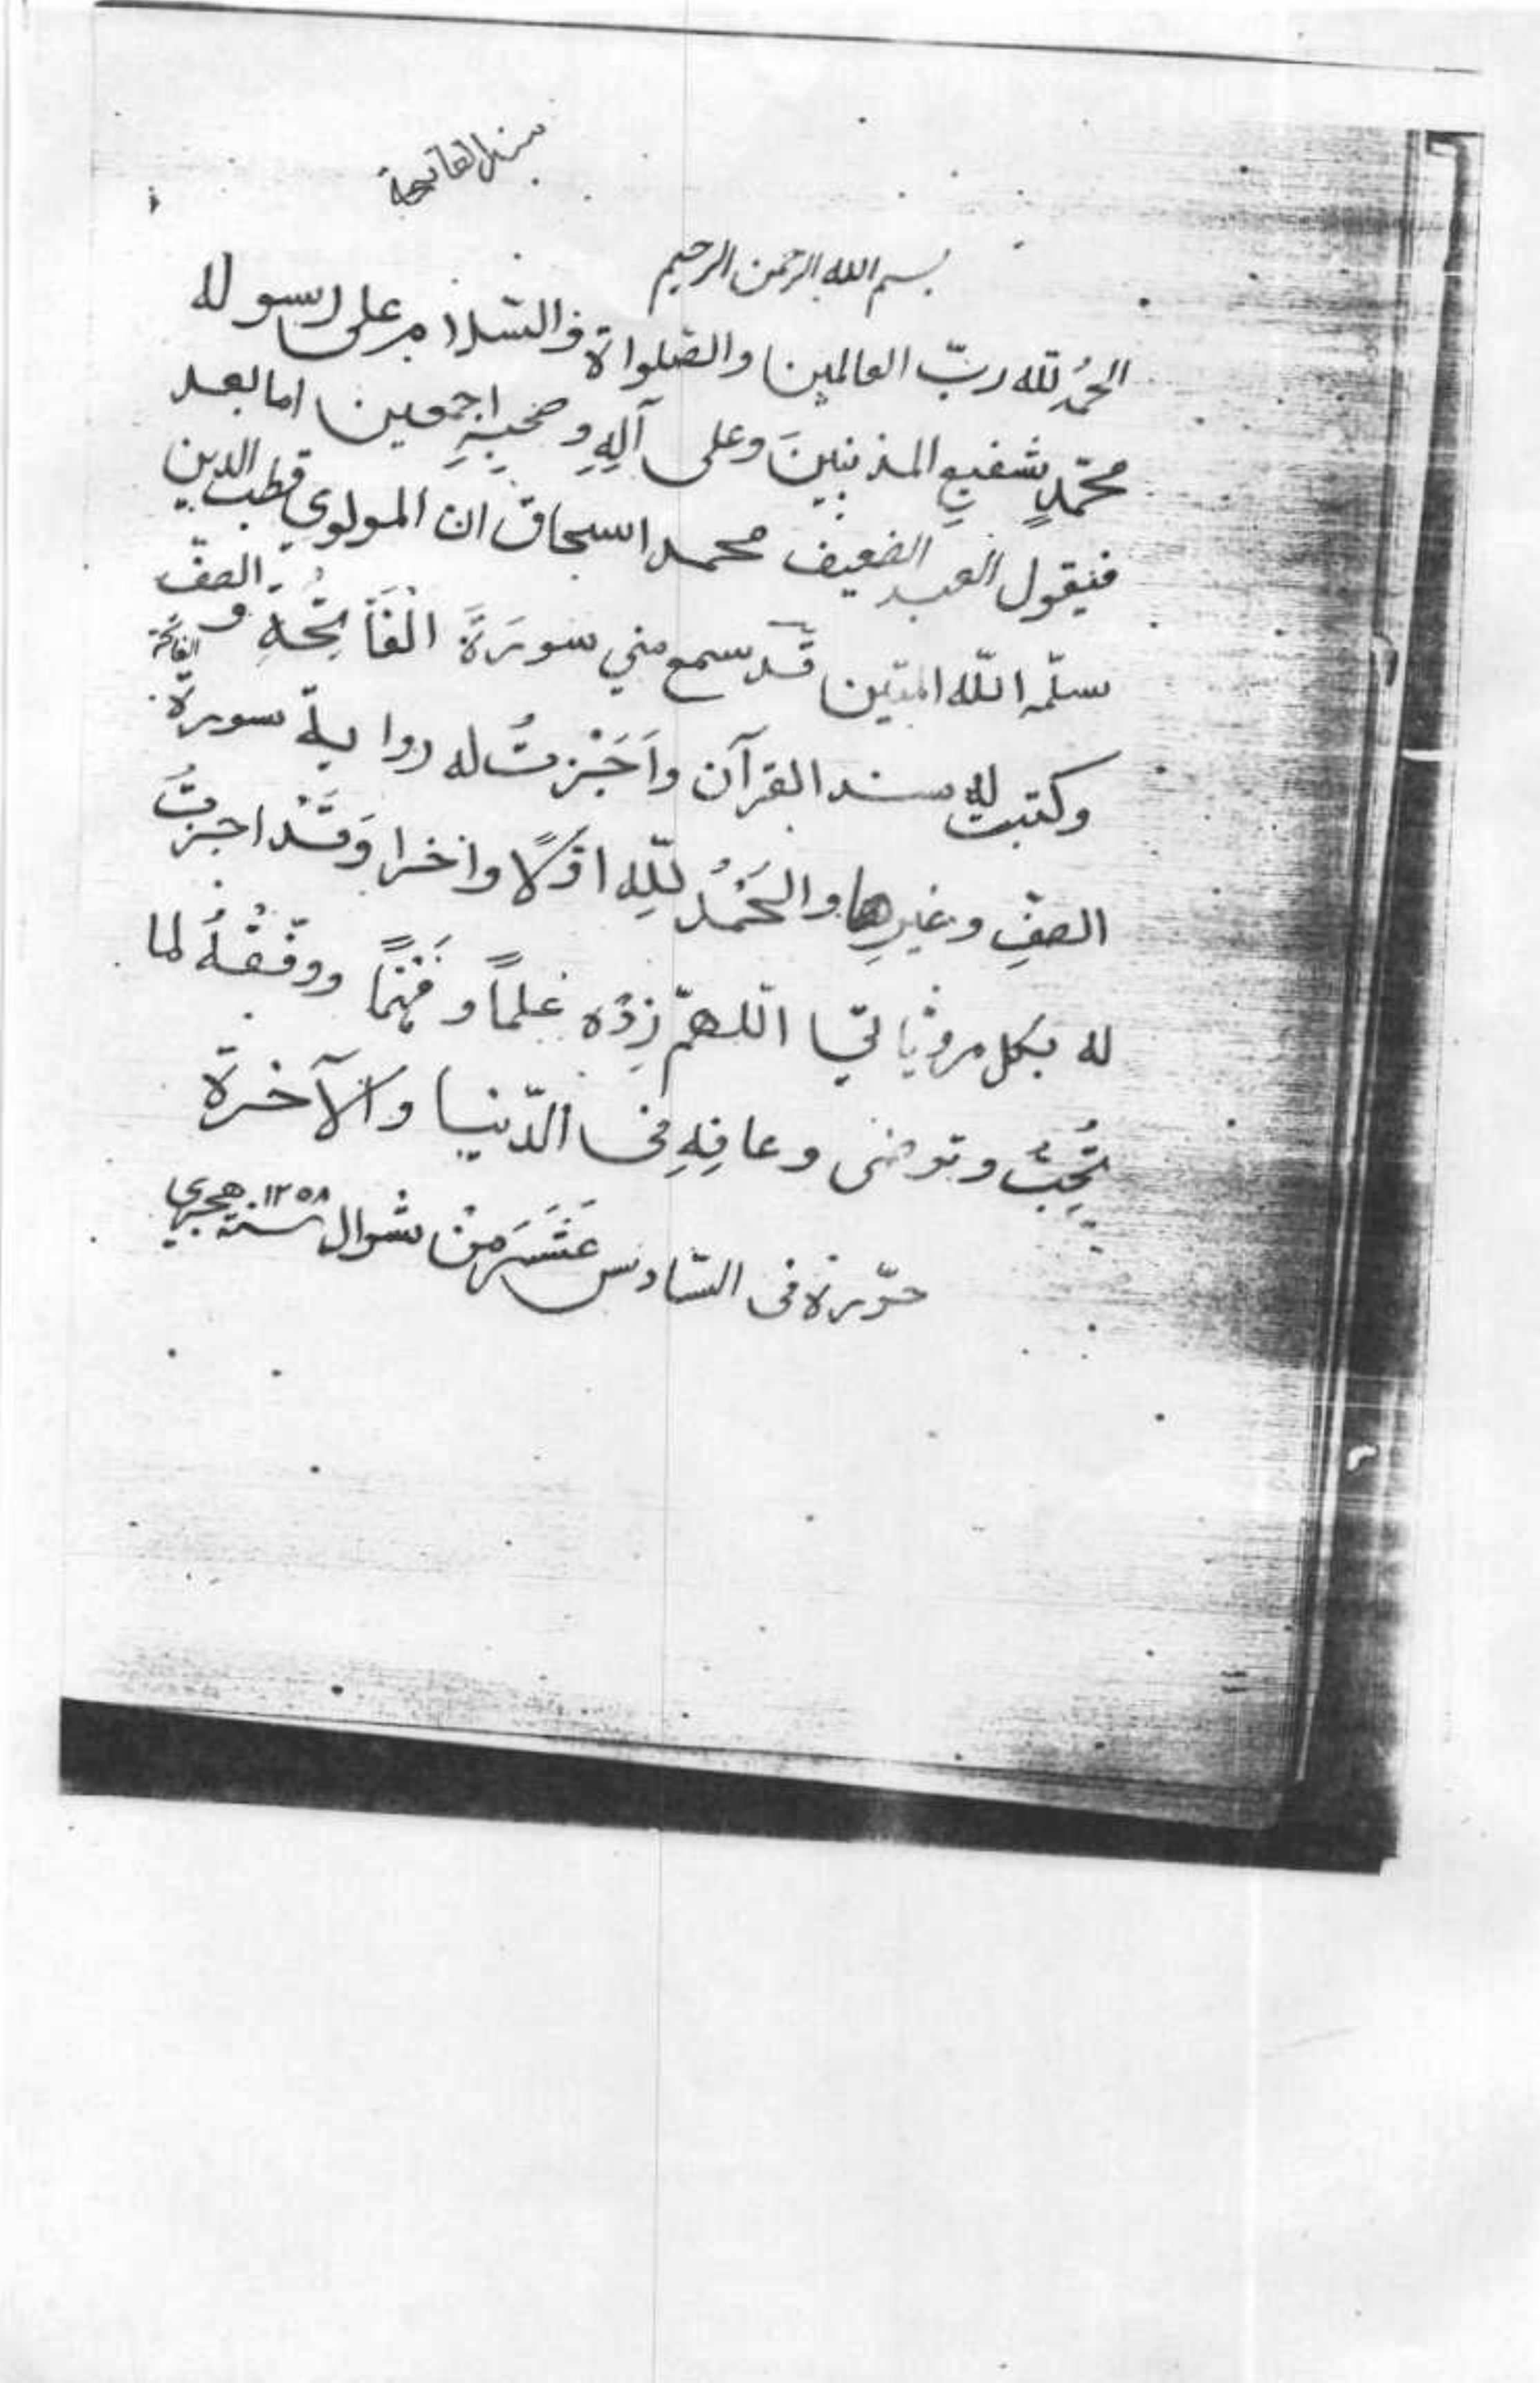 سند الفاتحة
بسم الله الرحمن الرحيم
الحمدُ لله ربّ العالمين والصّلواة والسّلام على رسوله
محمّدٍ شفيعِ المذنبينَ وعلى آلِهِ وصحبِهِ اجمعين اما بعد
فيقول العبد الضعيف محمد اسحاق ان المولوي قطب الدين
سلّمه اللّه المتين قد سمع مني سورَةَ الْفَاتِحَةِ و الصفّ
وكتبت له سند القرآن واَجَزْتُ له رواية سورة الفاتحة
الصفِّ وغيرِها والْحَمْدُ لِلّهِ اوّلًا واخرا وَقَدْ اجزتُ
له بكل مرويّاتي اللّهمّ زِدْه علماً وفَهْمًا ووفّقْهُ لما
تُحِبُّ وترضى وعافِهِ في الدّنيا والآخرة
حرّره فى السّادس عَشَرَ مِنْ شوال سنة ١٢٥٨ هجري